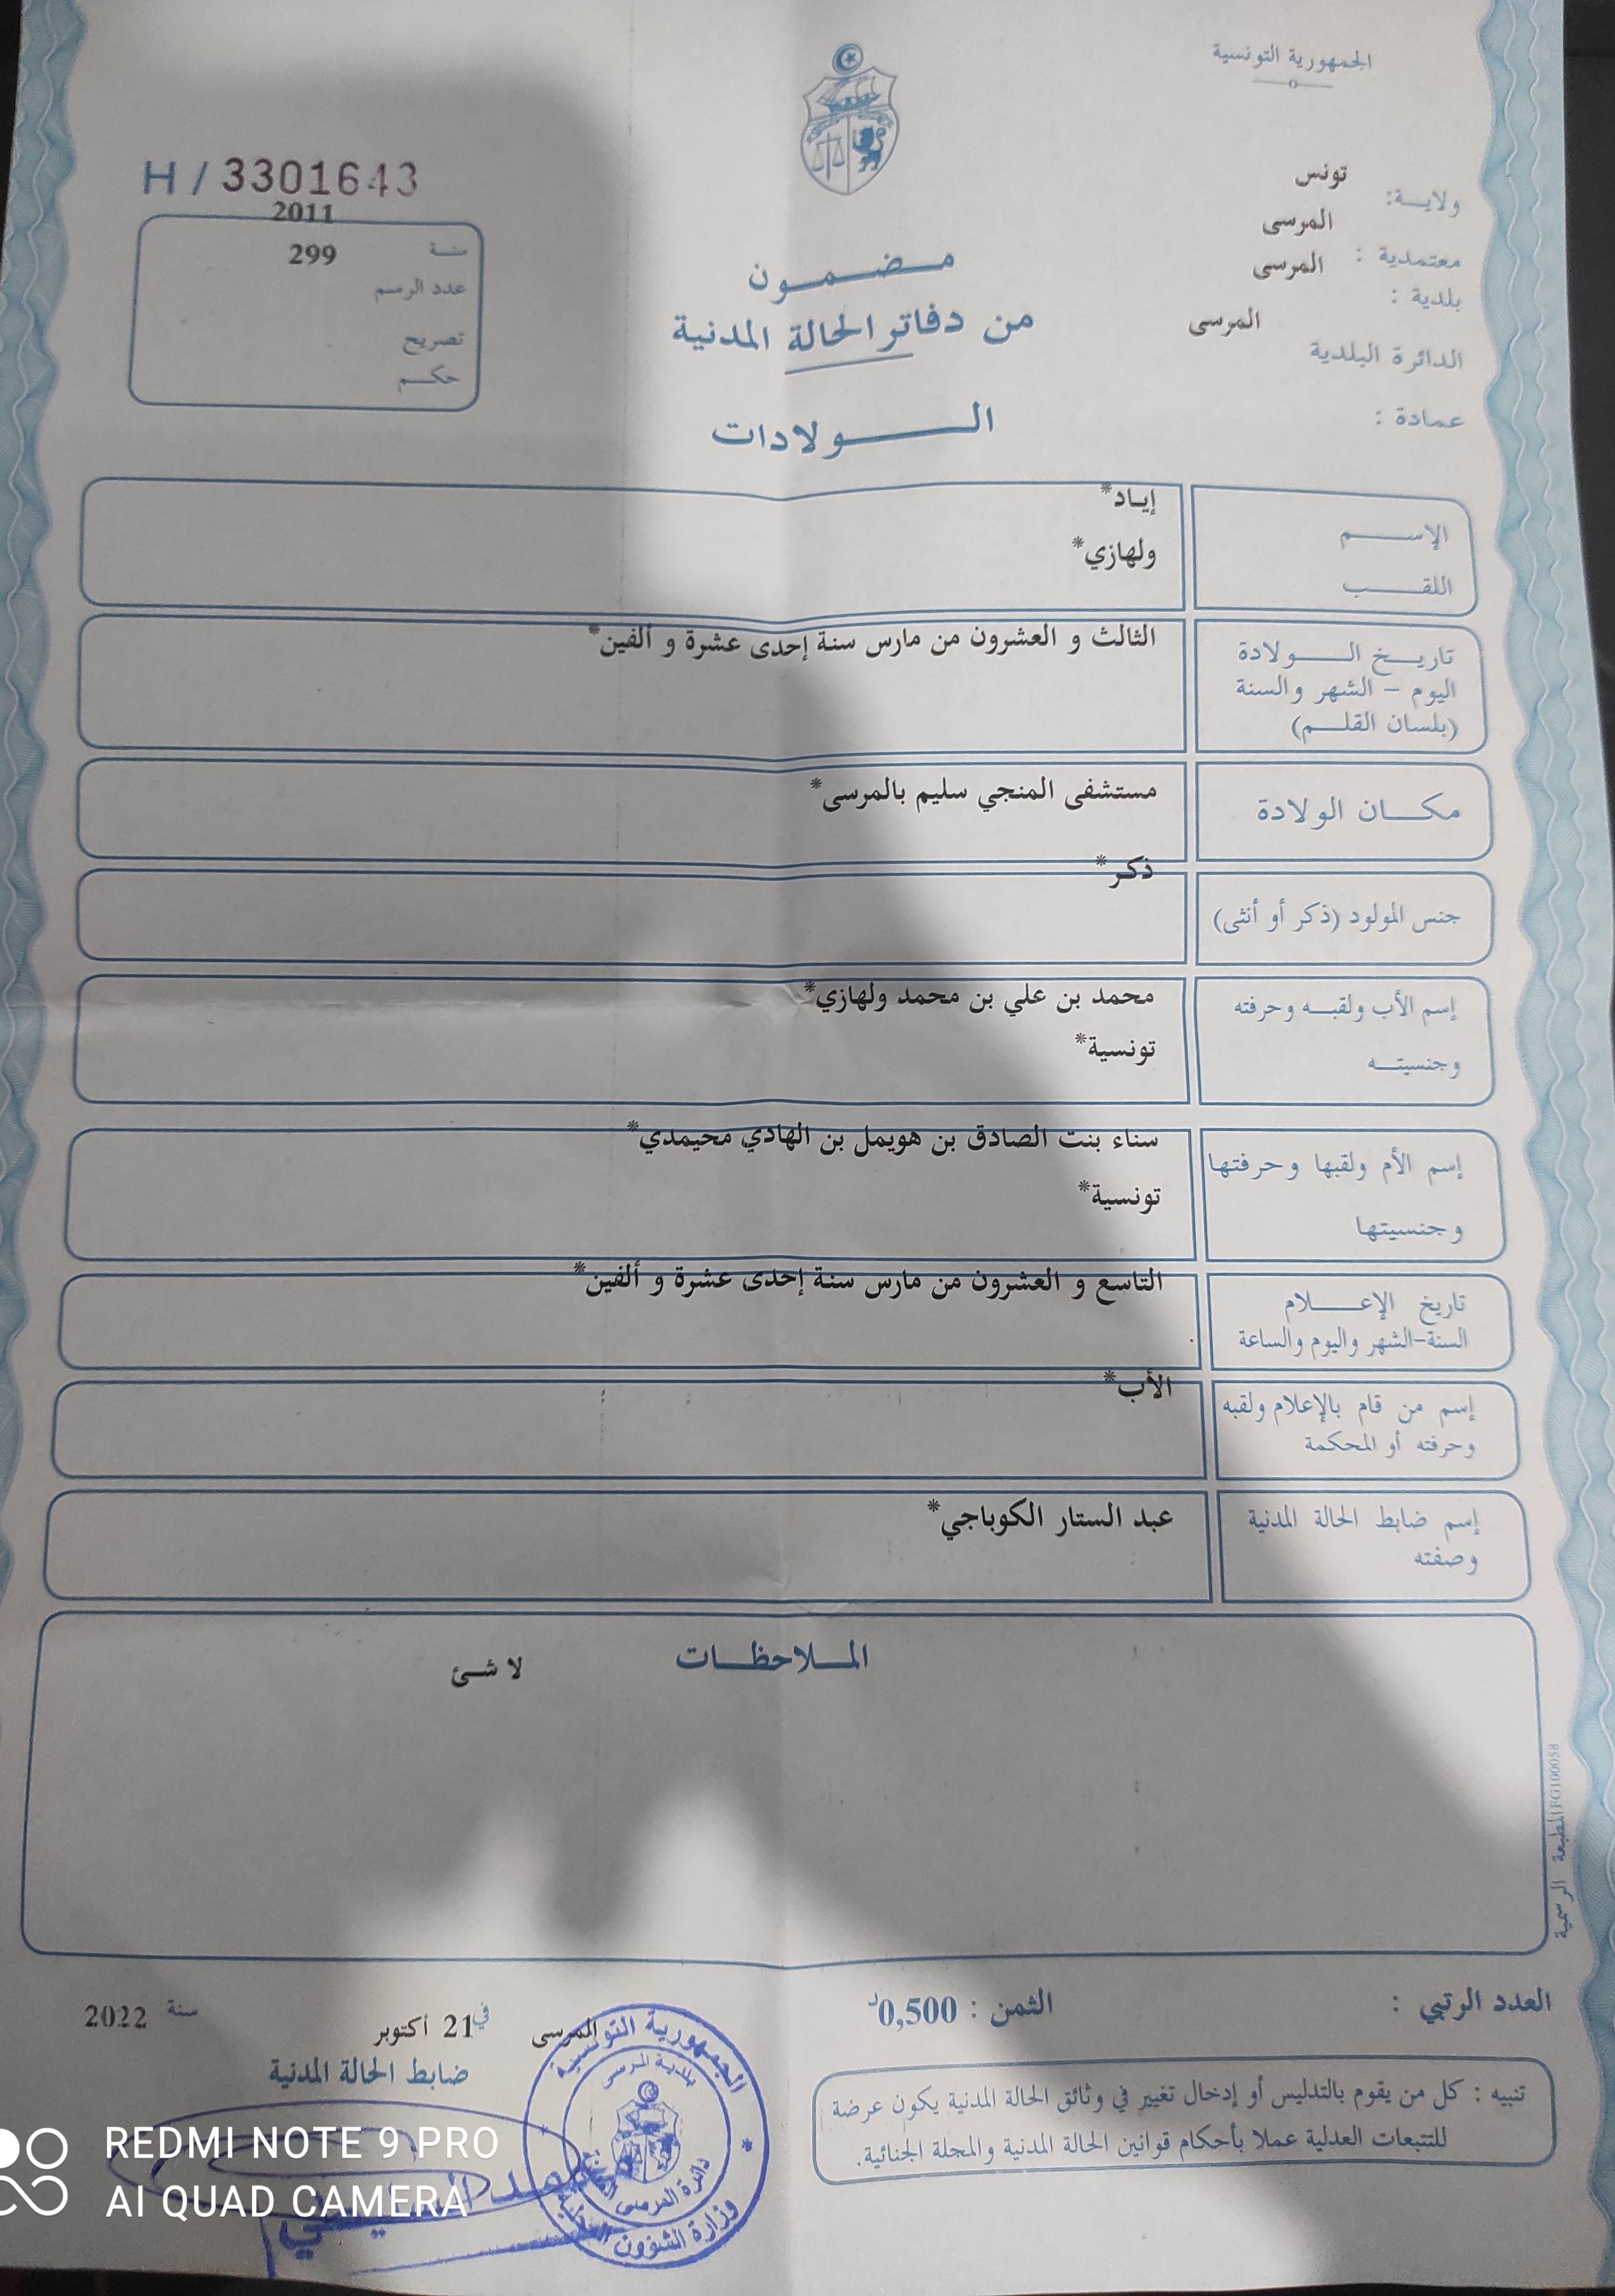 الجمهورية التونسية
ولايـة: تونس
معتمدية : المرسى
بلدية : المرسى
الدائرة البلدية المرسى
عمادة :
H / 3301643
سنة 2011
عدد الرسم 299
تصريح
حكم
مضمون
من دفاتر الحالة المدنية
الولادات
الإسم إياد*
اللقب ولهازي*
تاريخ الولادة
اليوم - الشهر والسنة
(بلسان القلم)
الثالث و العشرون من مارس سنة إحدى عشرة و ألفين*
مكان الولادة
مستشفى المنجي سليم بالمرسى*
جنس المولود (ذكر أو أنثى)
ذكر*
إسم الأب ولقبه وحرفته
وجنسيته
محمد بن علي بن محمد ولهازي*
تونسية*
إسم الأم ولقبها وحرفتها
وجنسيتها
سناء بنت الصادق بن هويمل بن الهادي محيمدي*
تونسية*
تاريخ الإعلام
السنة-الشهر واليوم والساعة
التاسع و العشرون من مارس سنة إحدى عشرة و ألفين*
إسم من قام بالإعلام ولقبه
وحرفته أو المحكمة
الأب*
إسم ضابط الحالة المدنية
وصفته
عبد الستار الكوباجي*
الملاحظات
لا شئ
المطبعة الرسمية FG100058
العدد الرتبي :
الثمن : 0,500د
المرسى في 21 أكتوبر سنة 2022
ضابط الحالة المدنية
تنبيه : كل من يقوم بالتدليس أو إدخال تغيير في وثائق الحالة المدنية يكون عرضة
للتتبعات العدلية عملا بأحكام قوانين الحالة المدنية والمجلة الجنائية.
الجمهورية التونسية
بلدية المرسى
دائرة المرسى
وزارة الشؤون
REDMI NOTE 9 PRO
AI QUAD CAMERA